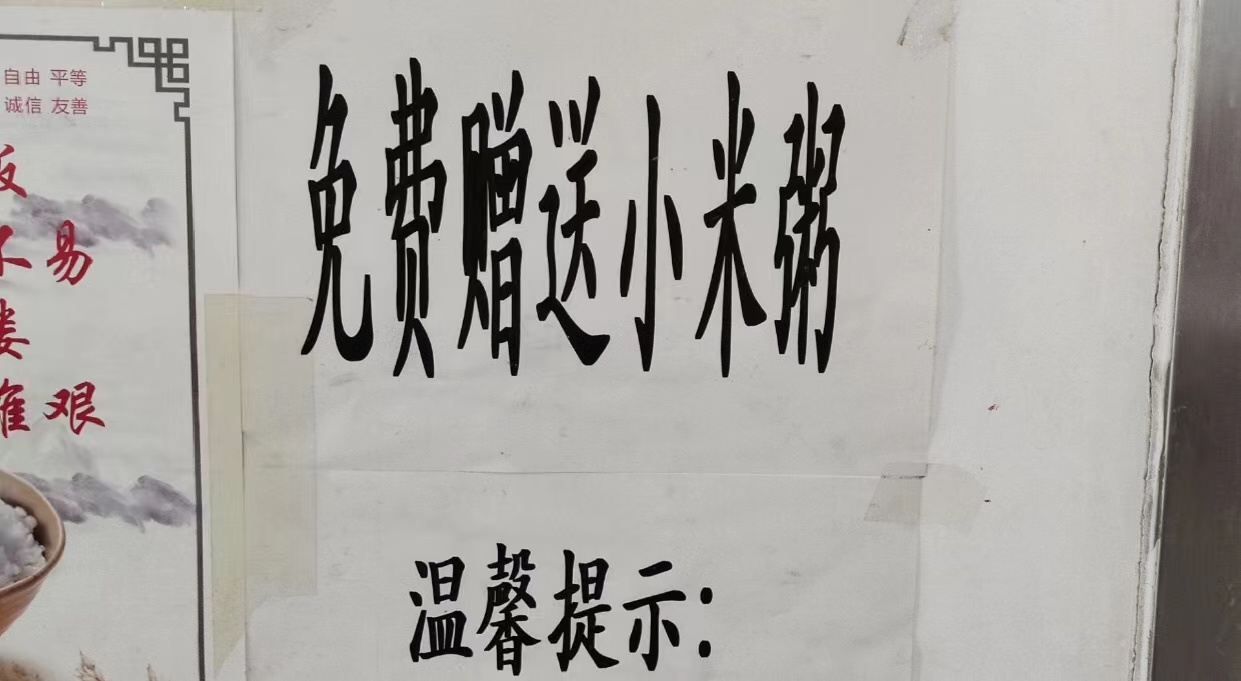 自由 平等
诚信 友善
易
艰
免费赠送小米粥
温馨提示: